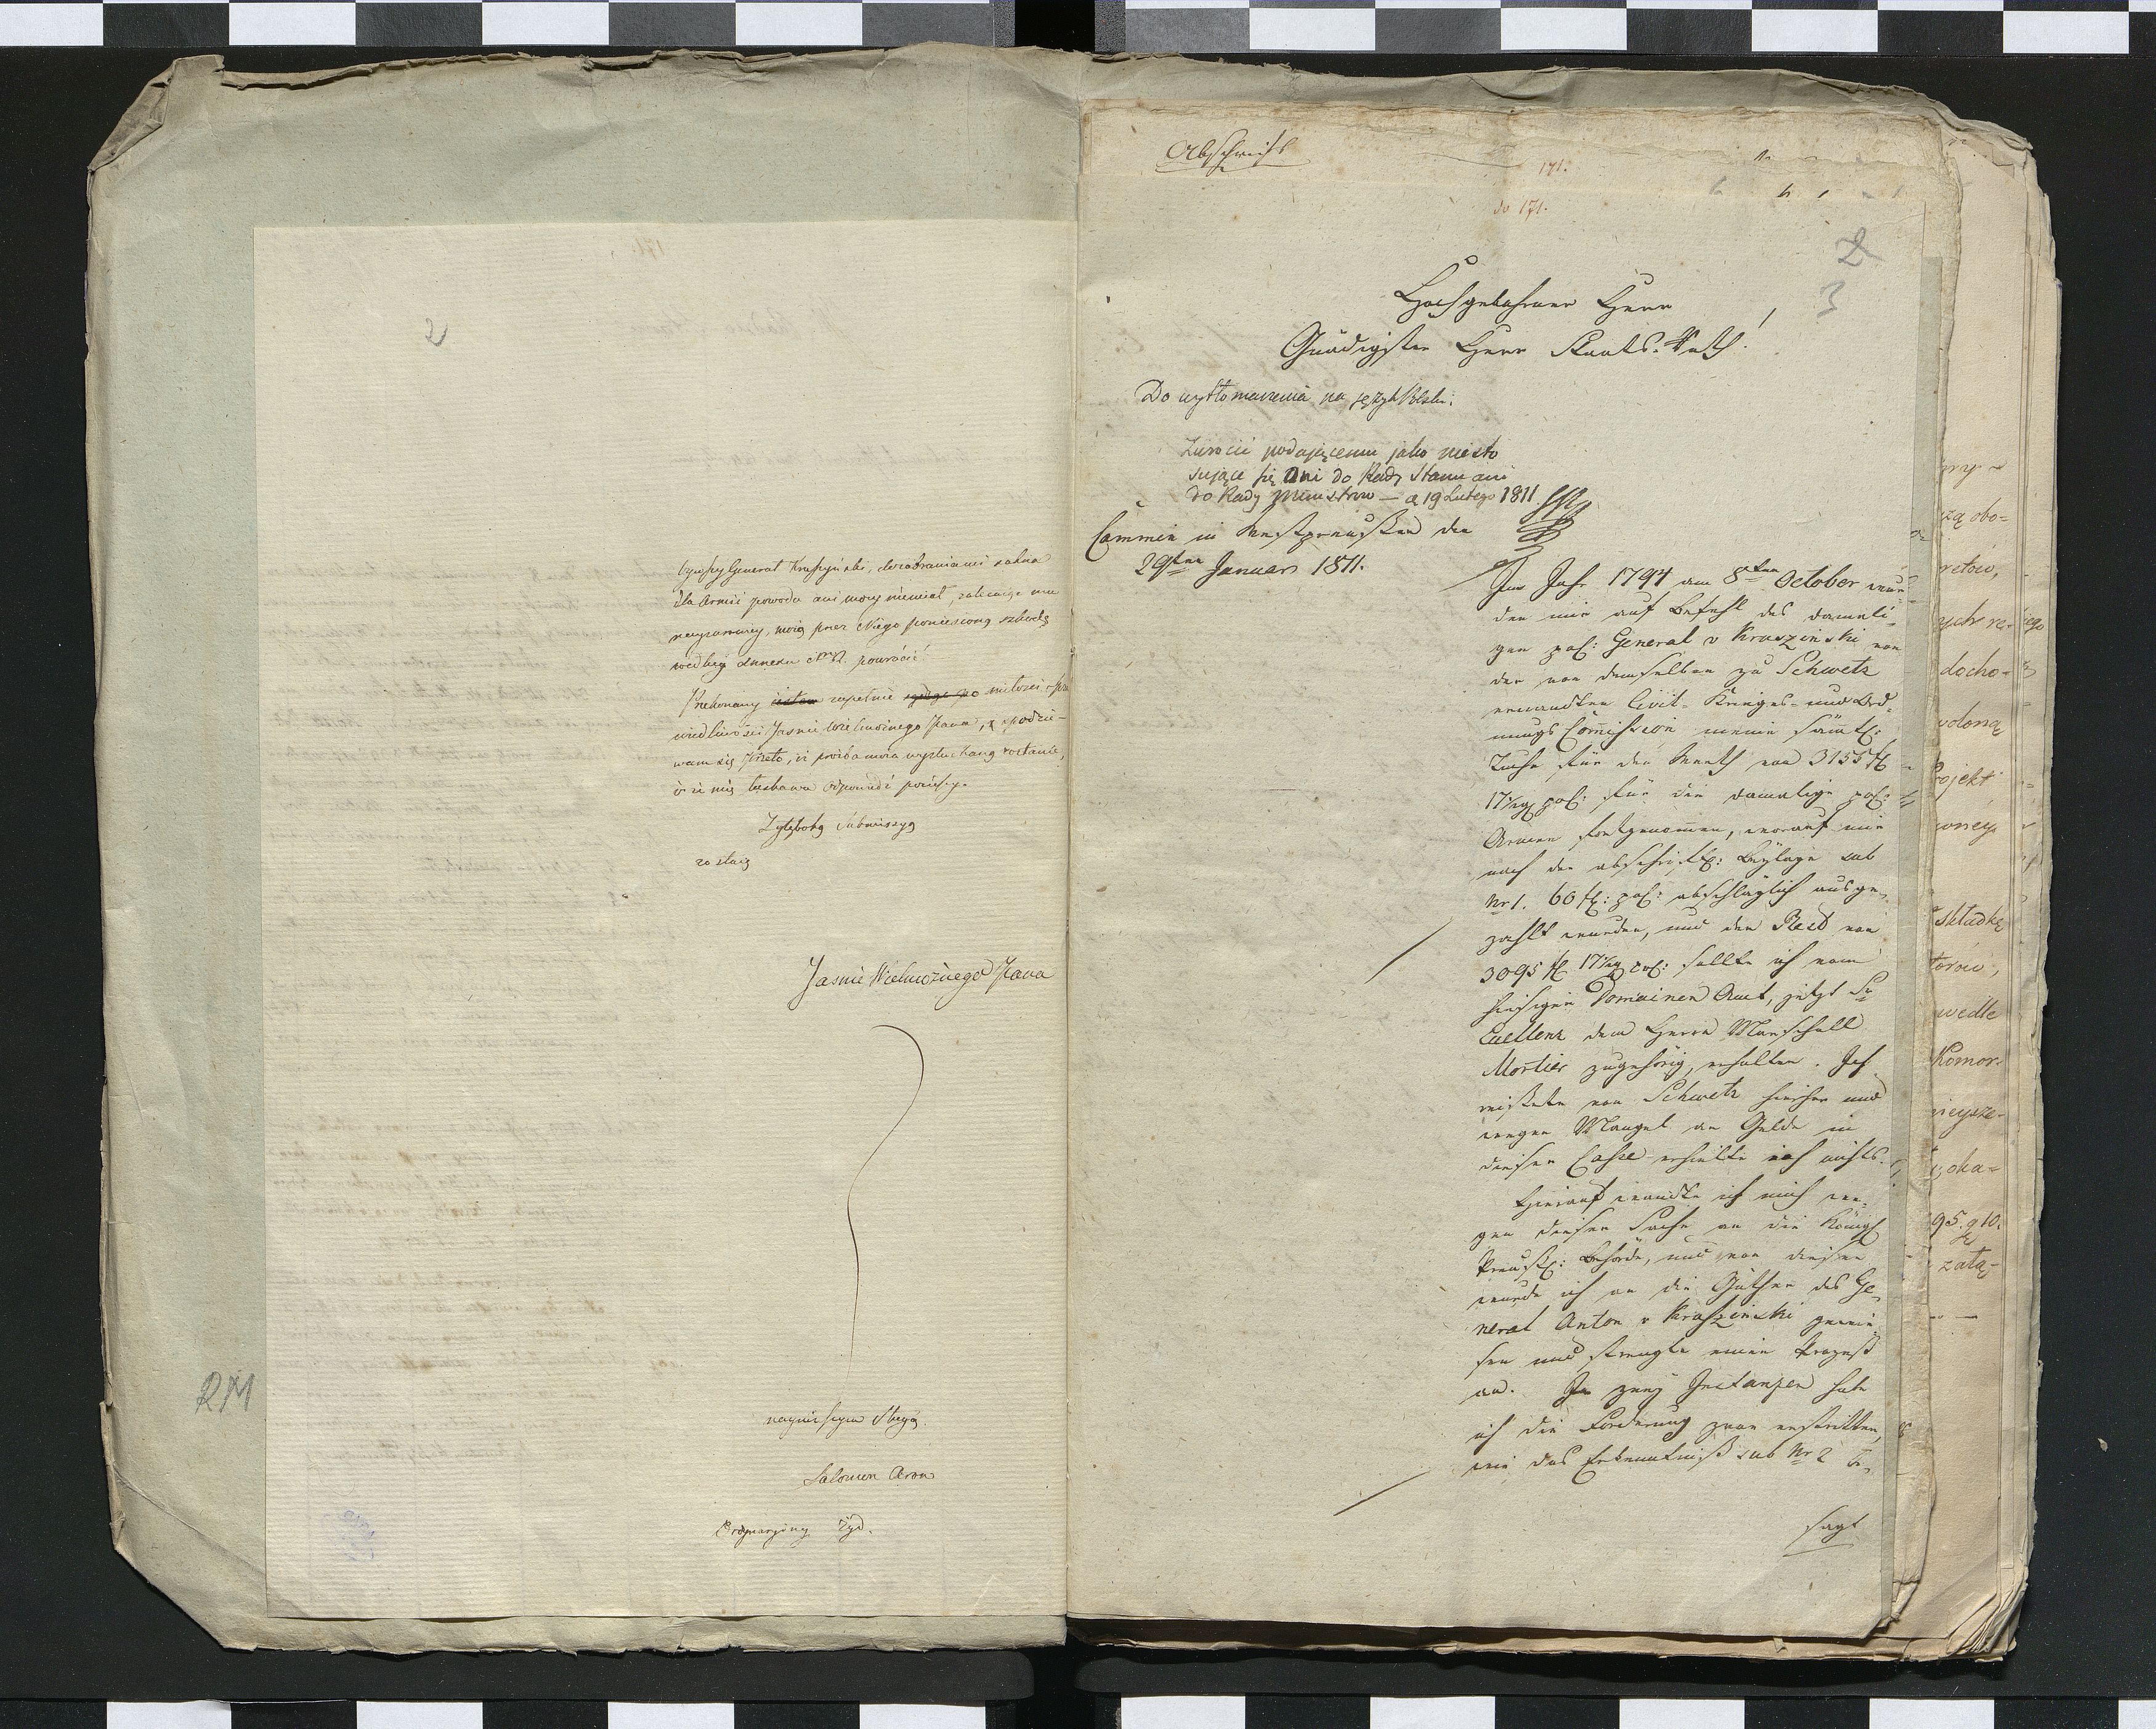 2
bywszy Generał Kraszyński, do zabrania mi sukna
dla Armii powodu ani mocy niemiał, zaleciwszy mu
moię przez Niego poniesioną szkodę
podług Annexu Nro 2. powrócić
Przekonany zupełnie o miłości spra
wiedliwości Jaśnie Wielmożnego Pana, spodzie-
wam się przeto, iż prośba moia wysłuchaną zostanie,
i że mię łaskawa odpowiedź pocieszy.
Z głęboką submissyą
zostaię
Jaśnie Wielmożnego Pana
nayniższym Sługą
Salomon Aron
Żyd.
RM
Abschrift
171.
do 171.
2
3
Hochgebohrner Herr
Gnädigster Herr Staats-Rath!
Do wytłomaczenia na język Polski.
Zwrócić podającemu jako niesto
sujące się ani do Rady Stanu ani
do Rady Ministrów — d. 19 Lutego 1811
Cammin in Westpreußen den
29ten Januar 1811.
Im Jahr 1794 am 8ten October wur-
den mir auf Befehl des damali-
gen pol: General v Kraszinski von
der von demselben zu Schwetz
ernandten Civil-Krieges- und Ord-
nungs Commission meine sämtl:
Tuche für den Werth von 3155 fl
17 gg pol: für die damalige pol:
Armee fortgenommen, worauf mir
nach der abschriftl: Beylage sub
Nr 1. 60 fl: pol: abschläglich ausge-
zahlt wurden, und den Rest von
3095 fl 17 gg pol: sollte ich vom
hiesigen Domainen Amt, jetzt Sr
Excellenz dem Herrn Marschall
Mortier zugehörig, erhalten. Ich
reißete von Schwetz hierher und
wegen Mangel an Gelde in
dieser Casse erhielte ich nichts.
Hierauf wandte ich mich we-
gen dieser Sache an die Königl
Preußl: Behörde, und von dieser
wurde ich an die Güther des Ge-
neral Anton v Kraszinski gewie-
sen und strengte einen Prozeß
an. In zwey Instanzen habe
ich die Forderung zwar erstritten,
wie das Erkenntniß sub Nr 2 be-
sagt
zą obo=
retów,
docho=
Projekt
składkę
torów,
wedle
Komor-
oka=
95. g 10.
zata-